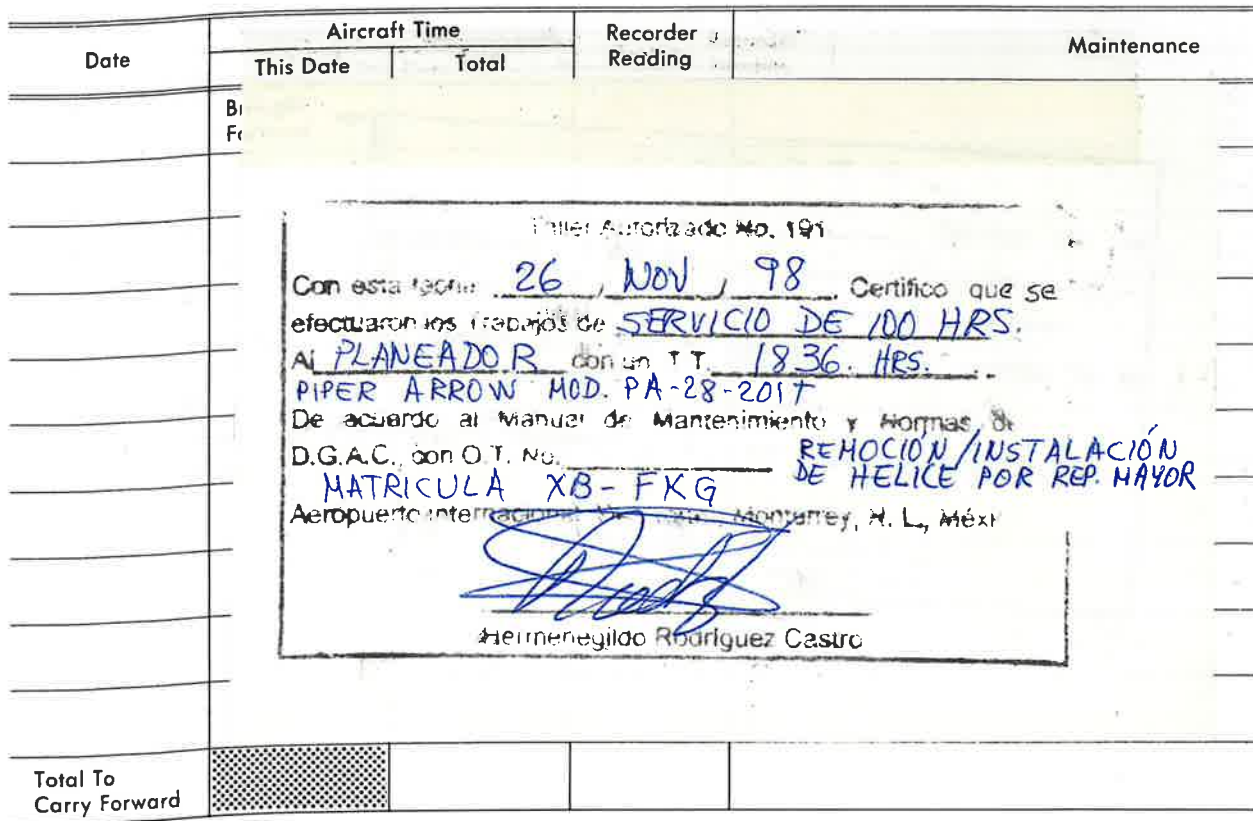 Date
Aircraft Time
This Date
Total
Recorder Reading
Maintenance
Taller Autorizado No. 191
Con esta fecha 26 / NOV / 98 Certifico que se
efectuaron los trabajos de SERVICIO DE 100 HRS.
Al PLANEADOR con un T.T. 1836. HRS.
PIPER ARROW MOD. PA-28-201T
De acuerdo al Manual de Mantenimiento y Normas de
D.G.A.C., con O.T. No.
REMOCIÓN/INSTALACIÓN
DE HELICE POR REP. MAYOR
MATRICULA XB-FKG
Aeropuerto Internacional Monterrey, N. L., Méxi
Hermenegildo Rodríguez Castro
Total To
Carry Forward